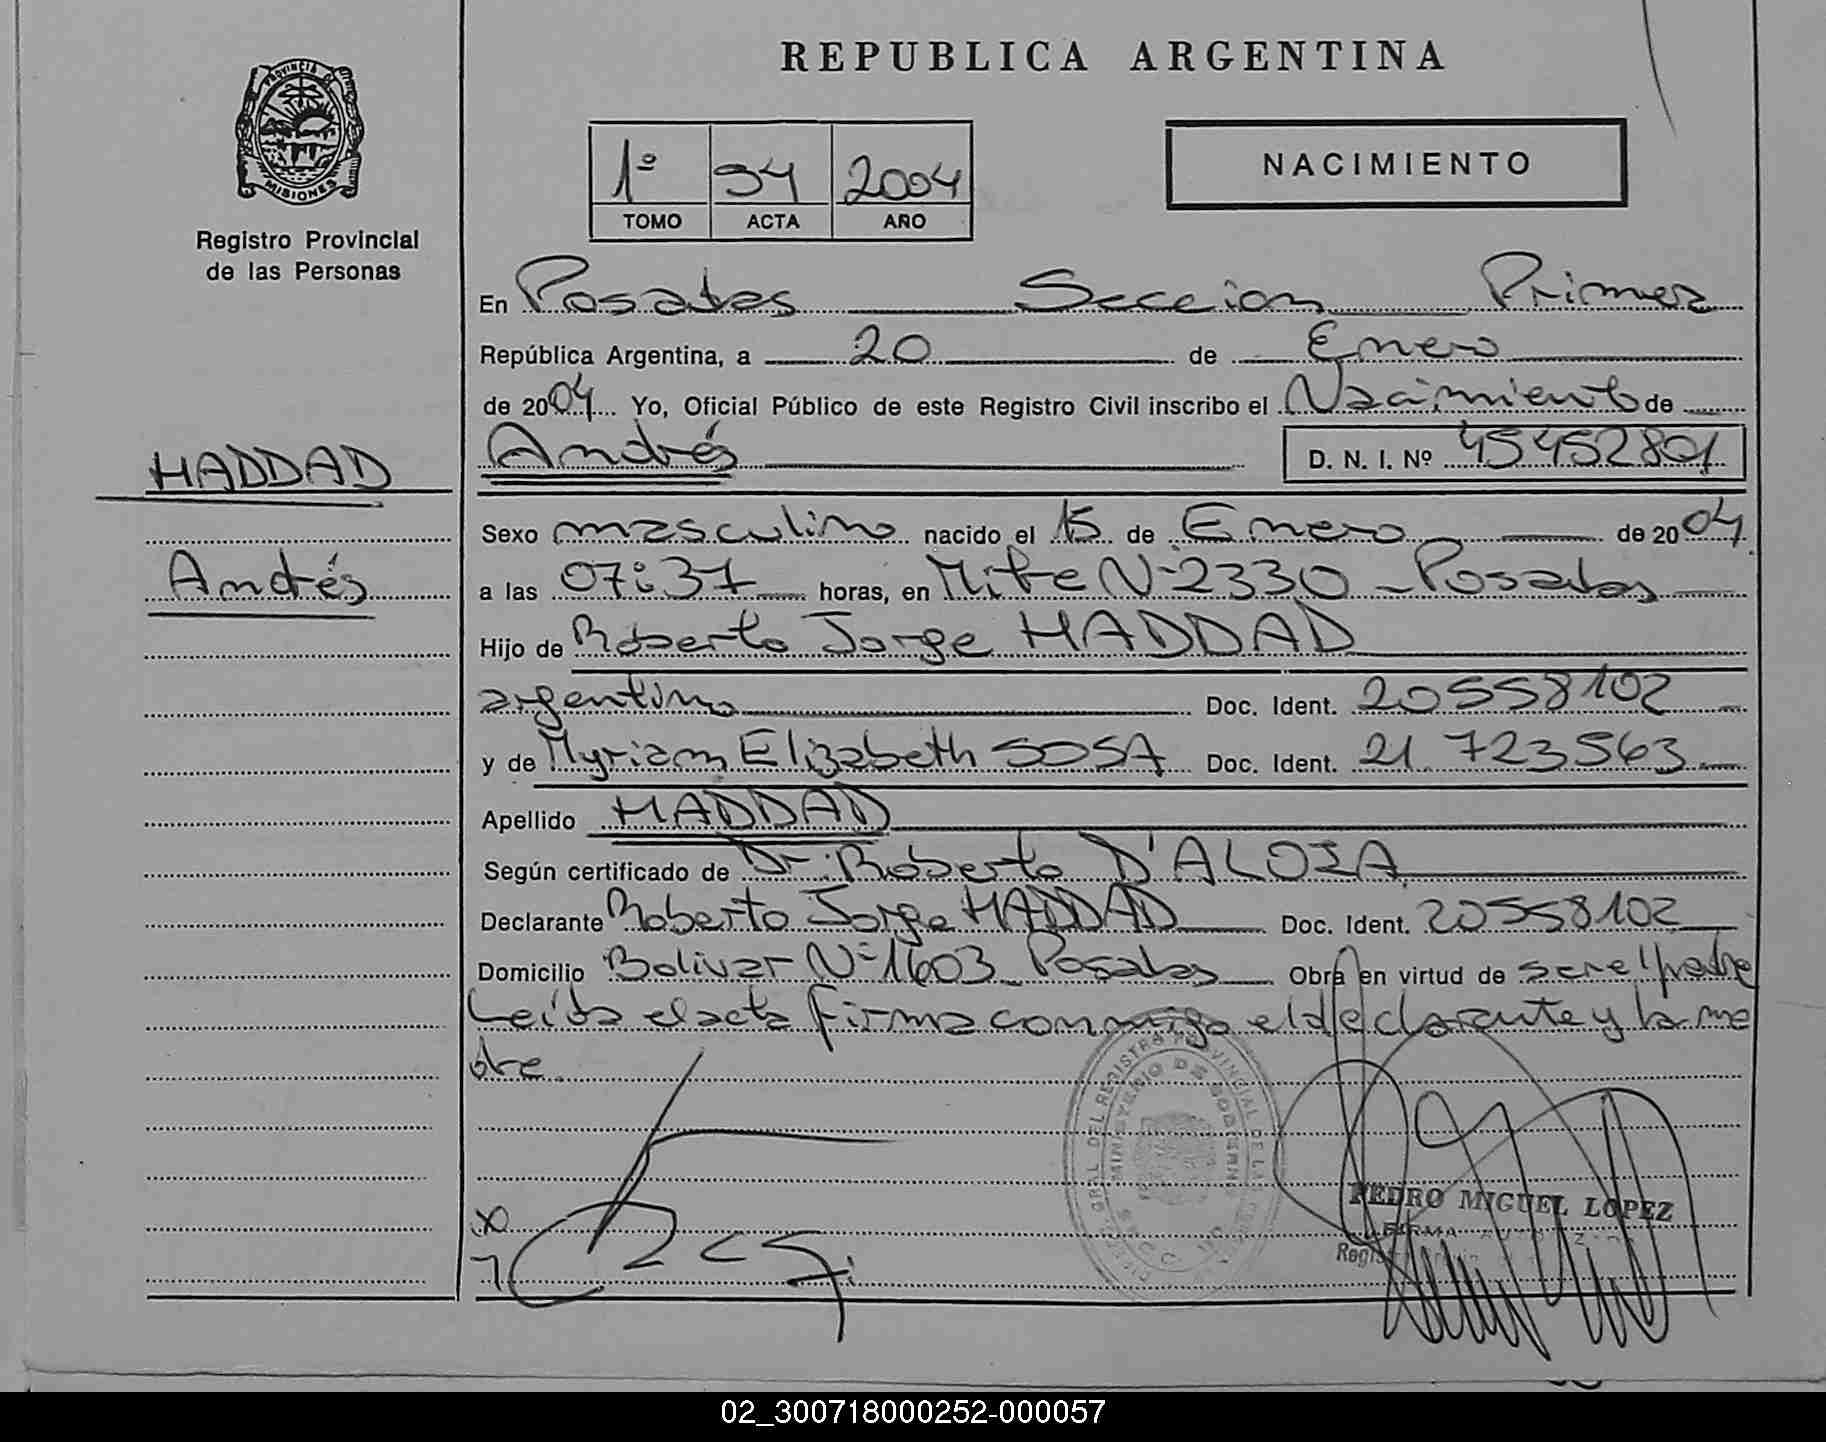 REPUBLICA ARGENTINA
PROVINCIA DE
MISIONES
Registro Provincial
de las Personas
1º 94 2004
TOMO ACTA AÑO
NACIMIENTO
En Posadas Seccion Primera
República Argentina, a 20 de Enero
de 2004 Yo, Oficial Público de este Registro Civil inscribo el Nacimiento de
HADDAD
Andrés D. N. I. Nº 45452801
Sexo masculino nacido el 15 de Enero de 2004
Andrés
a las 07:37 horas, en Mitre Nº 2330 - Posadas
Hijo de Roberto Jorge HADDAD
argentino Doc. Ident. 20558102
y de Myriam Elizabeth SOSA Doc. Ident. 21.723563
Apellido HADDAD
Según certificado de Dr. Roberto D'ALOIA
Declarante Roberto Jorge HADDAD Doc. Ident. 20558102
Domicilio Bolivar Nº 1603 Posadas Obra en virtud de ser el padre
Leída el acta firma conmigo el declarante y la ma
dre.
GRAL DEL REGISTRO PROVINCIAL DE LAS
MINISTERIO DE GOBIERNO
PEDRO MIGUEL LOPEZ
FIRMA
02_300718000252-000057